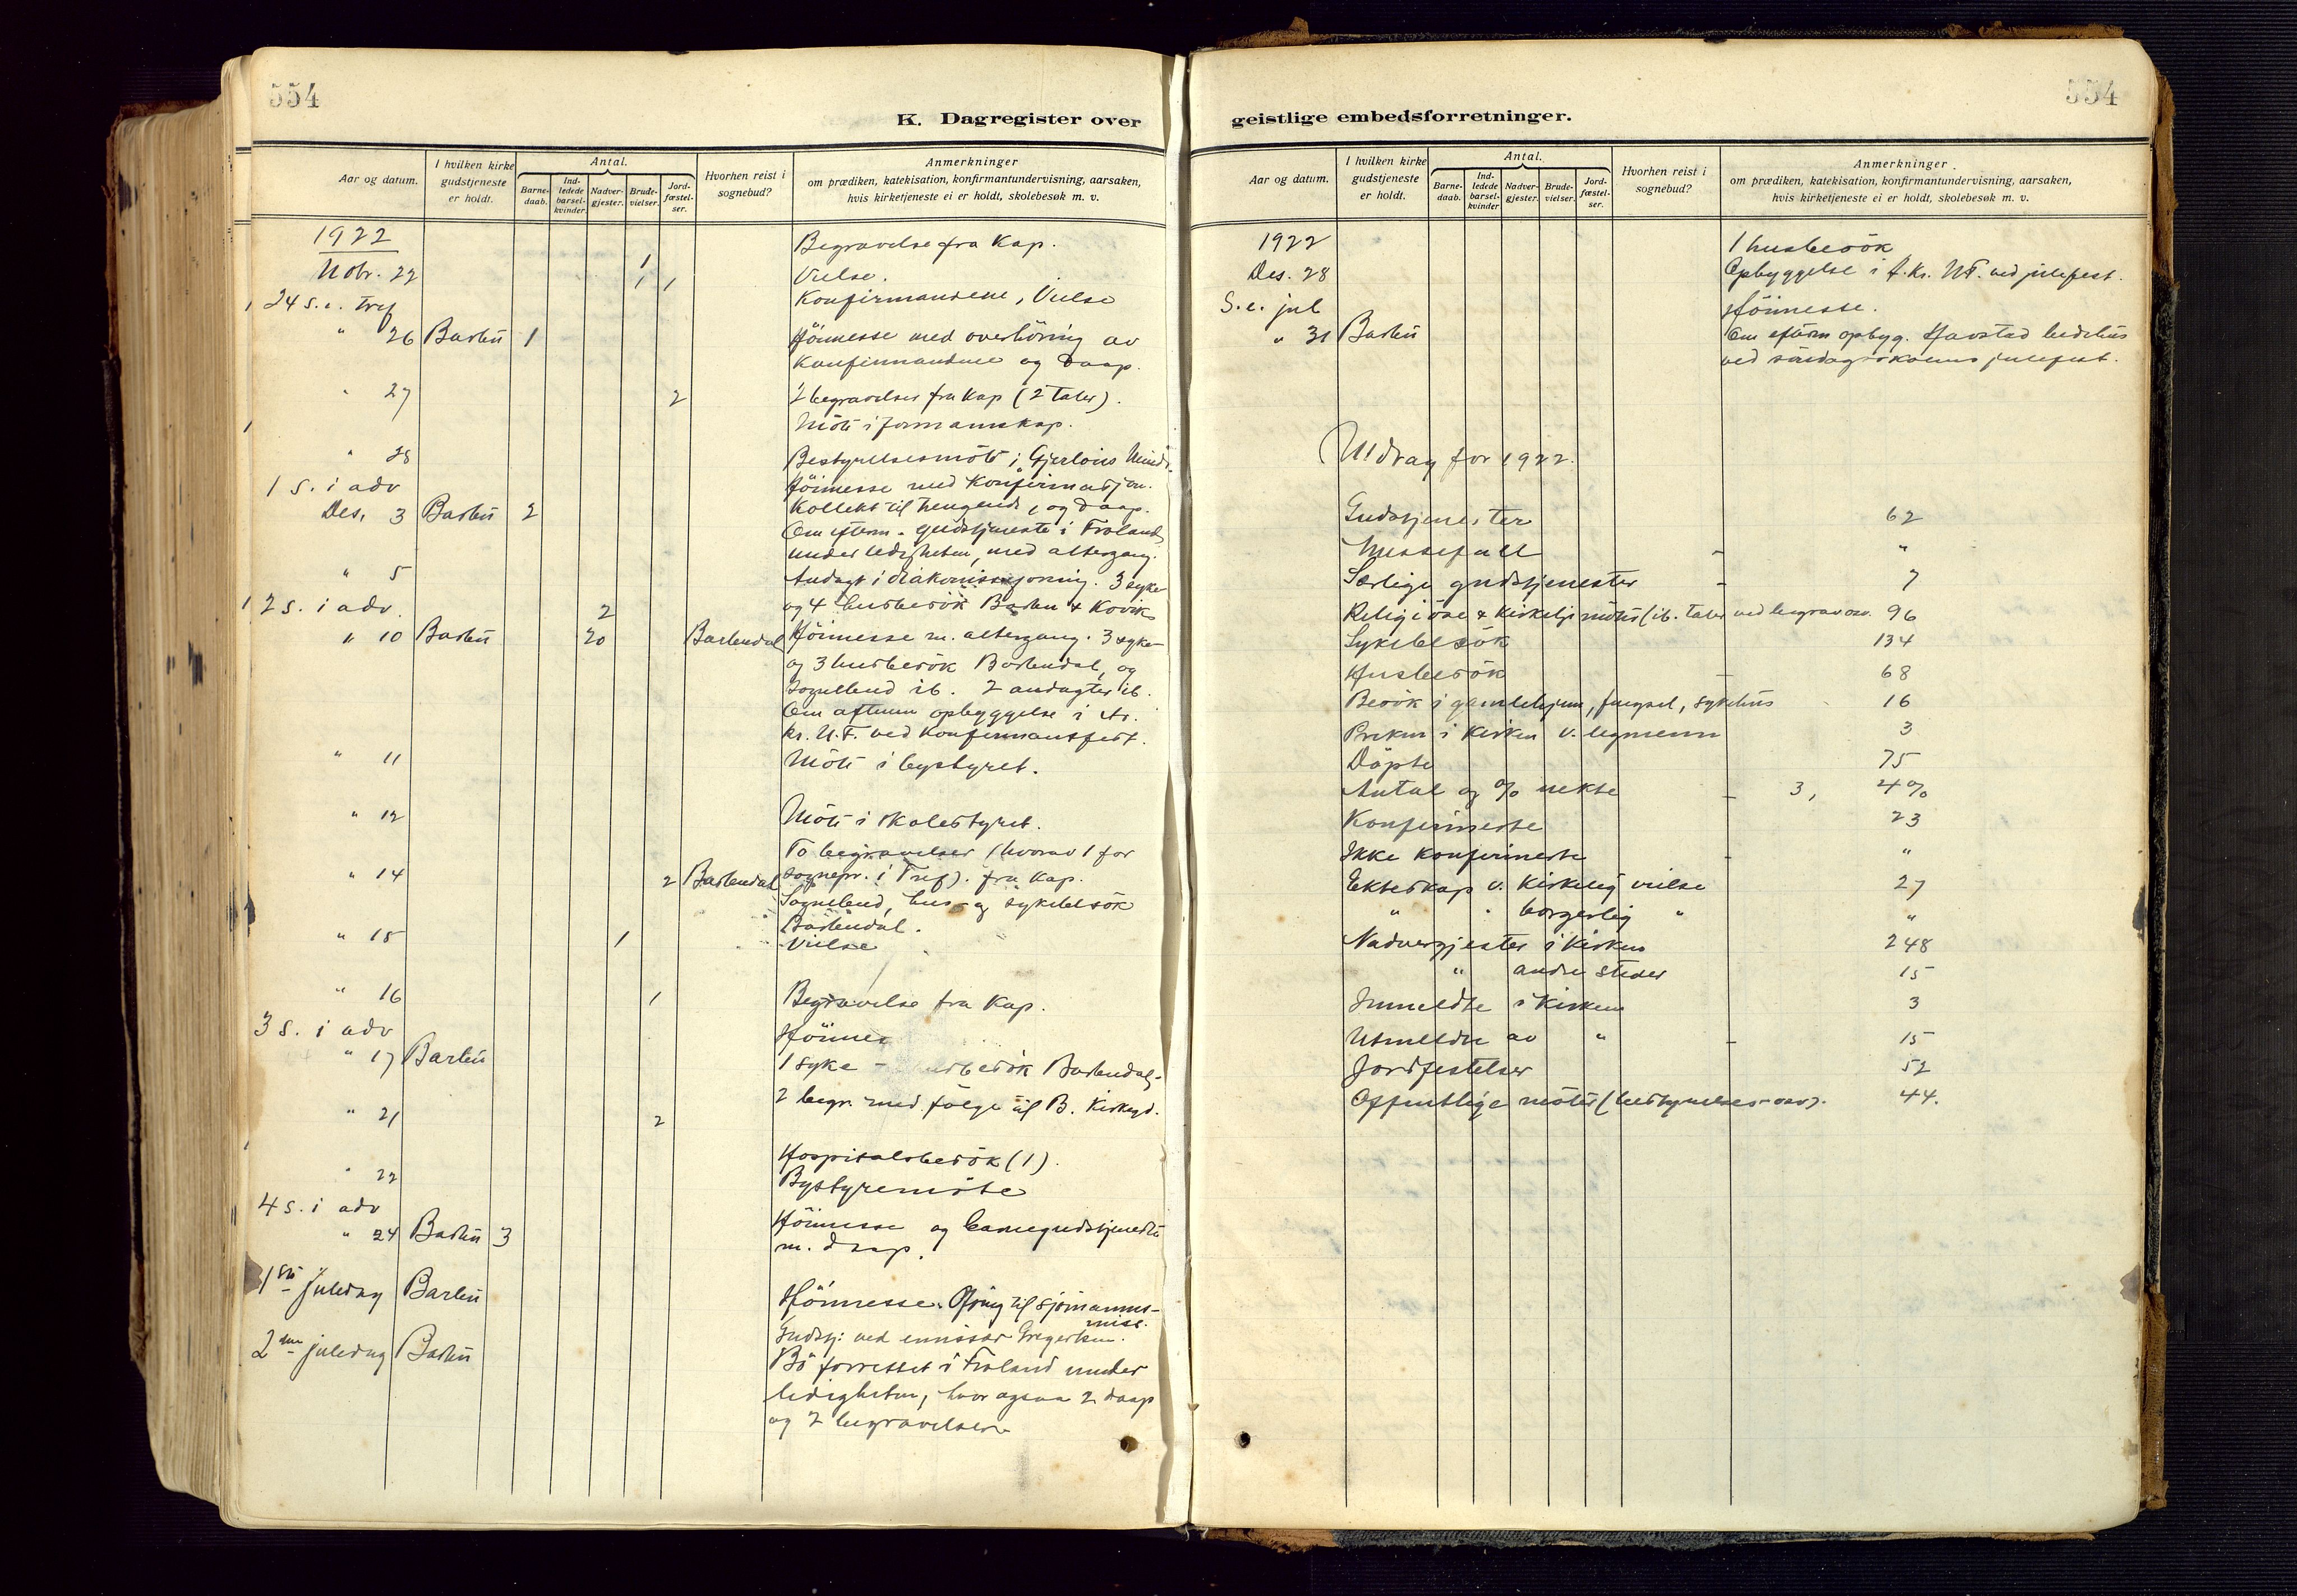 554
K. Dagregister over
Aar og datum.
I hvilken kirke gudstjneste er holdt.
Antal.
Barne-daab.
Ind-ledede barsel-kvinder.
Nadver-gjester.
Brude-vielser.
Jord-fæstel-ser.
Hvorhen reist i sognebud?
Anmerkninger
om prædiken, katekisation, konfirmantundervisning, aarsaken,
hvis kirketjeneste ei er holdt, skolebesøk m. v.
1922
Begravelse fra Kap.
Nobr. 22 1 Vielse.
24 s. e. tref 1 1 Konfirmantene, Vielse
" 26 Barbu 1 Höimesse med overhöring av
Konfirmantene og Daap.
" 27 2 2 begravelser fra Kap (2 taler).
Möte i formannskap.
" 28 Bestyrelsesmöte i Gjerlöus Minde.
1 s. i adv Höimesse med Konfirmasjon.
Des. 3 Barbu 2 Kollekt til trengende, og Daap.
Om efterm. gudstjeneste i Froland
under ledigheten, med altergang.
" 5 Andagt i diakonisseforening. 3 syke
2 s. i adv. 2 og 4 husbesök Barbu & Kovik
" 10 Barbu 20 Barbudal Höimesse m. altergang. 3 syke-
og 3 husbesök Barbudal, og
Sognebud ib. 2 andagter ib.
Om afternn opbyggelse i Ar.
kr. U.F. ved Konfirmantfest.
" 11 Möte i bystyret.
" 12 Möte i skolestyret.
To begravelser (hvorav 1 for
" 14 2 Barbudal sognepr. i Tref). fra Kap.
Sognebud, hus- og sykebesök
Barbudal.
" 15 1 Vielse
" 16 1 Begravelse fra Kap.
3 s. i adv Höimes
" 17 Barbu
1 syke - husbesök Barbudal.
" 21 2 2 begr. med fölge til B. Kirkegd.
" 22 Hospitalsbesök (1).
Bystyremöte
4 s. i adv
" 24 Barbu 3 Höimesse og barnegudstjeneste
m. daap.
1ste Juledag Barbu Höimesse. Ofring til sjömanns-
mis.
2den juledag Barbu Gudstj: ved emissær Gregersen.
Bö forrettet i Froland under
ledigheten, hvor ogsaa 2 daap
og 2 begravelser
554
geistlige embedsforretninger.
Aar og datum.
I hvilken kirke gudstjneste er holdt.
Antal.
Barne-daab.
Ind-ledede barsel-kvinder
Nadver-gjester.
Brude-vielser.
Jord-fæstel-ser.
Hvorhen reist i sognebud?
Anmerkninger
om prædiken, katekisation, konfirmantundervisning, aarsaken,
hvis kirketjeneste ei er holdt, skolebesøk m. v.
1922 1 husbesök
Des. 28 Opbyggelse i A. Kr. UF. ved julefest.
S. e. jul Höimesse.
" 31 Barbu Om efterm opbyg. Havstad bedehus
ved söndagsskolens julefest.
Utdrag for 1922.
Gudstjenester 62
Messefall - "
Særlige gudstjenester - 7
Religiöse & Kirkelige möter (ib. taler ved begrav osv. 96
Sykebesök 134
Husbesök - 68
Besök i gamlehjem, fengsel, sykehus - 16
Preken i Kirken v. legmenn 3
Döpte 75
Antal og % uekte - 3, 4%
Konfirmerte 23
Ikke konfirmerte - "
Ekteskap v. Kirkelig vielse 27
" " borgerlig " "
Nadvergjester i Kirken 248
" andre steder 15
Innmeldte i Kirken 3
Utmeldte av " - 15
Jordfestelser 52
Offentlige möter (bestyrelses- osv). 44.